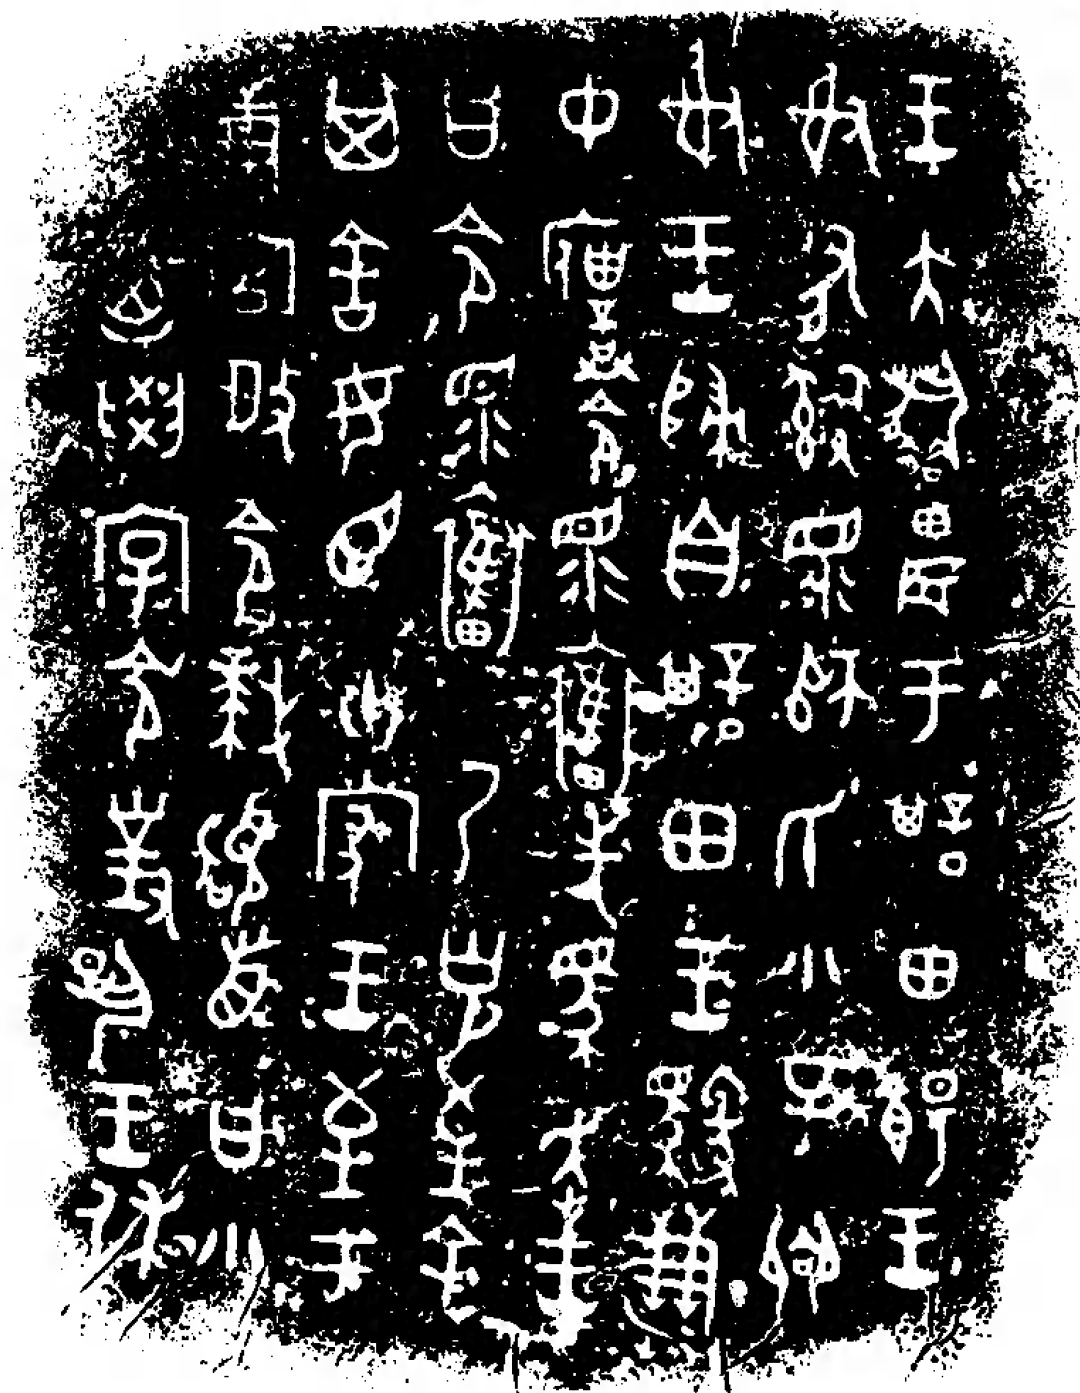 王大耤農于諆田餳王
射有𤔲眔師氏小子𫨻射
王歸自諆田王馭溓
中僕令眔奮先馬走王
曰令眔奮乃克至余
其舍女臣卅家王至于
溓宮𢼄令拜𩒨首曰小
迺學令對揚王休